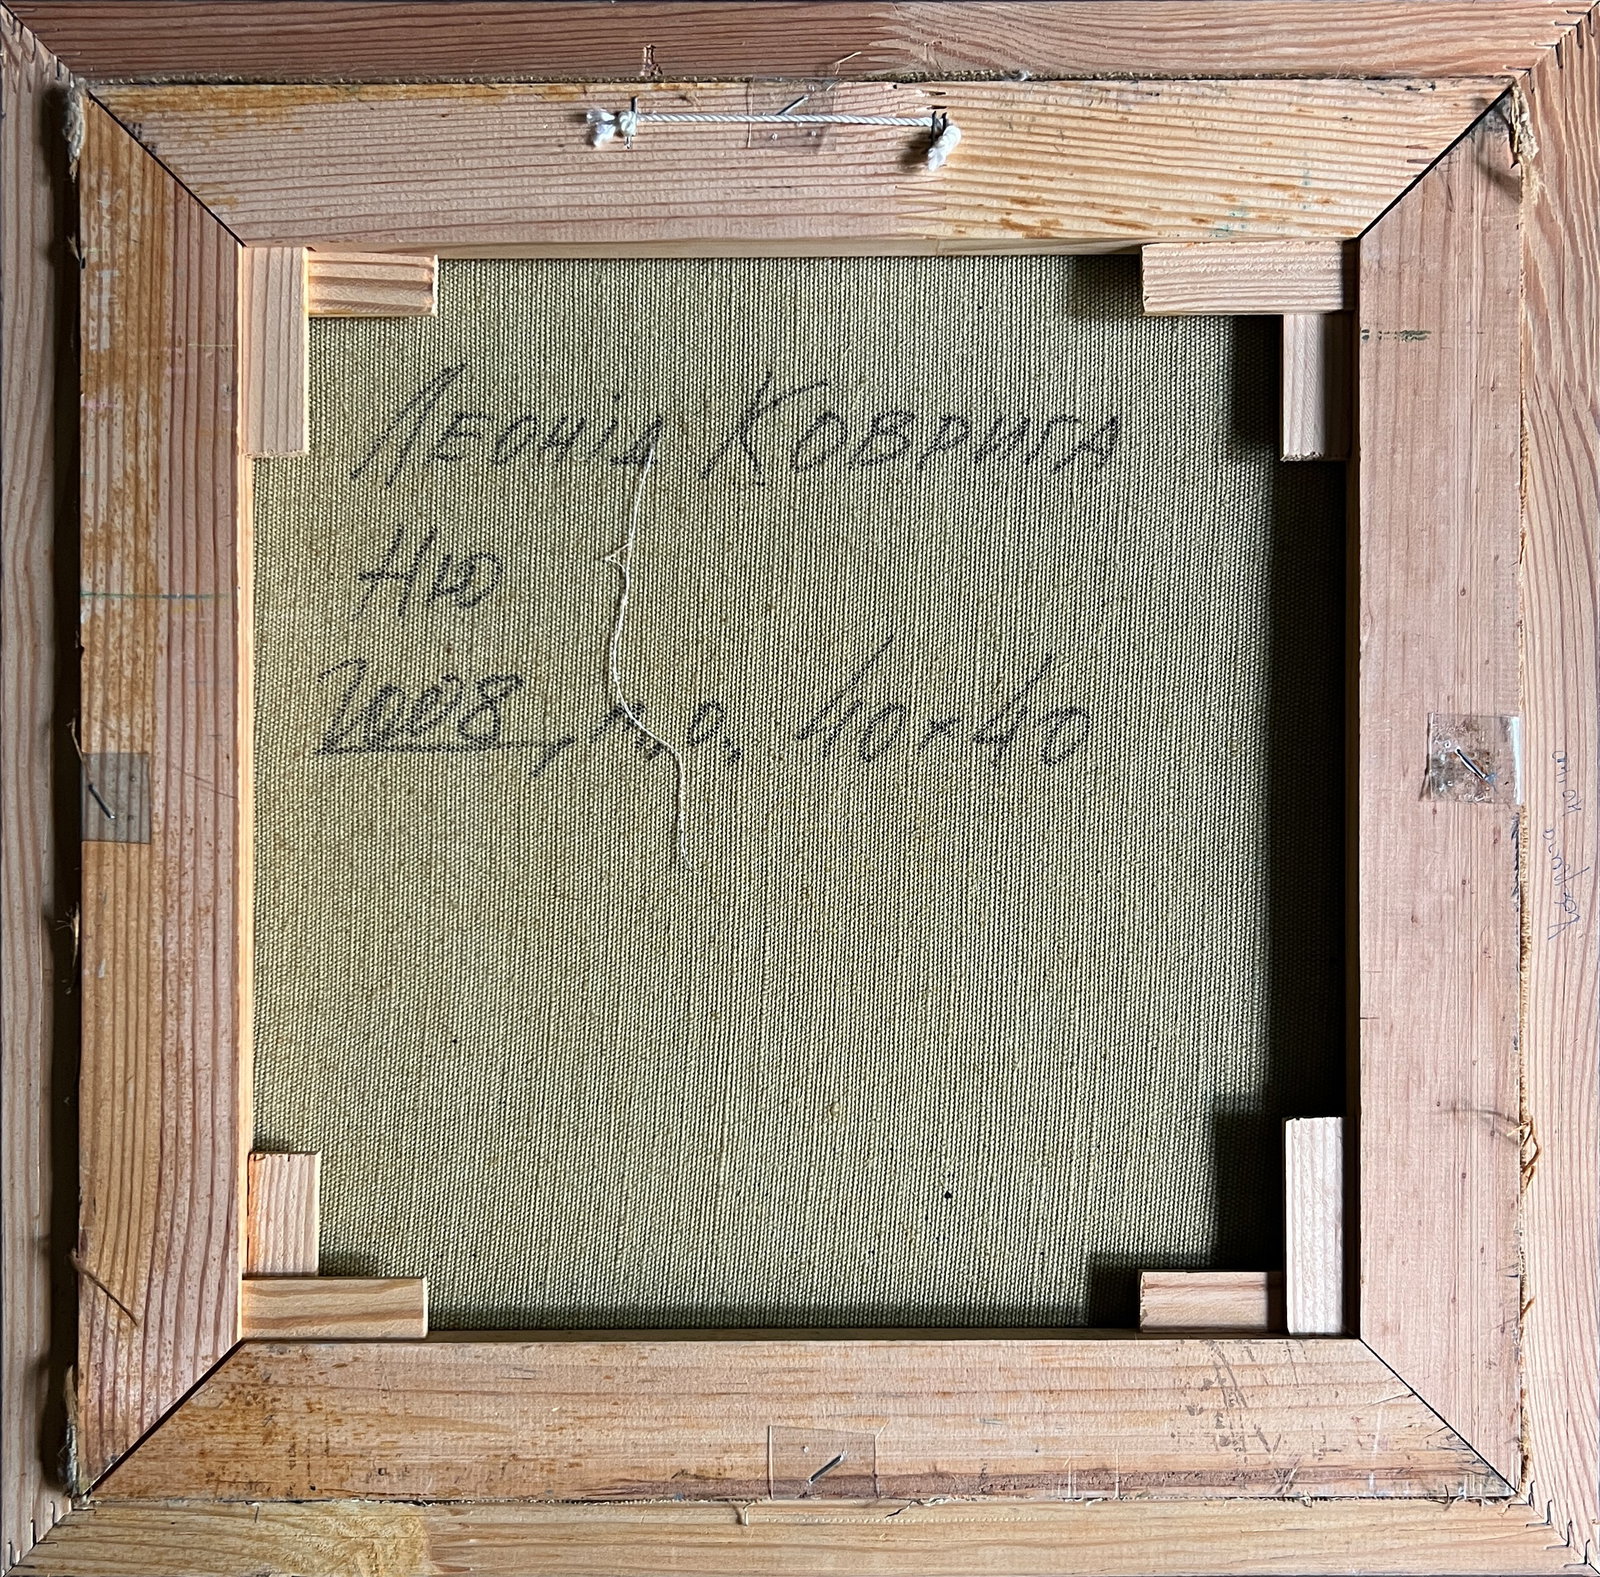 Леонід Коврига
Ню
2008, п.о. 40×40